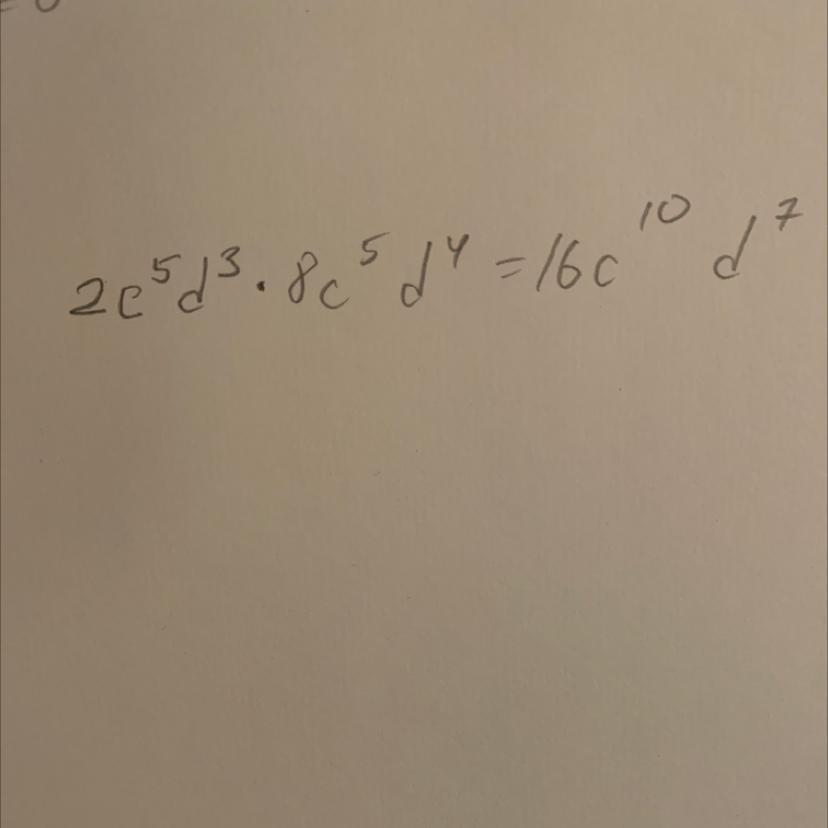 2c⁵d³ · 8c⁵d⁴ = 16c¹⁰d⁷